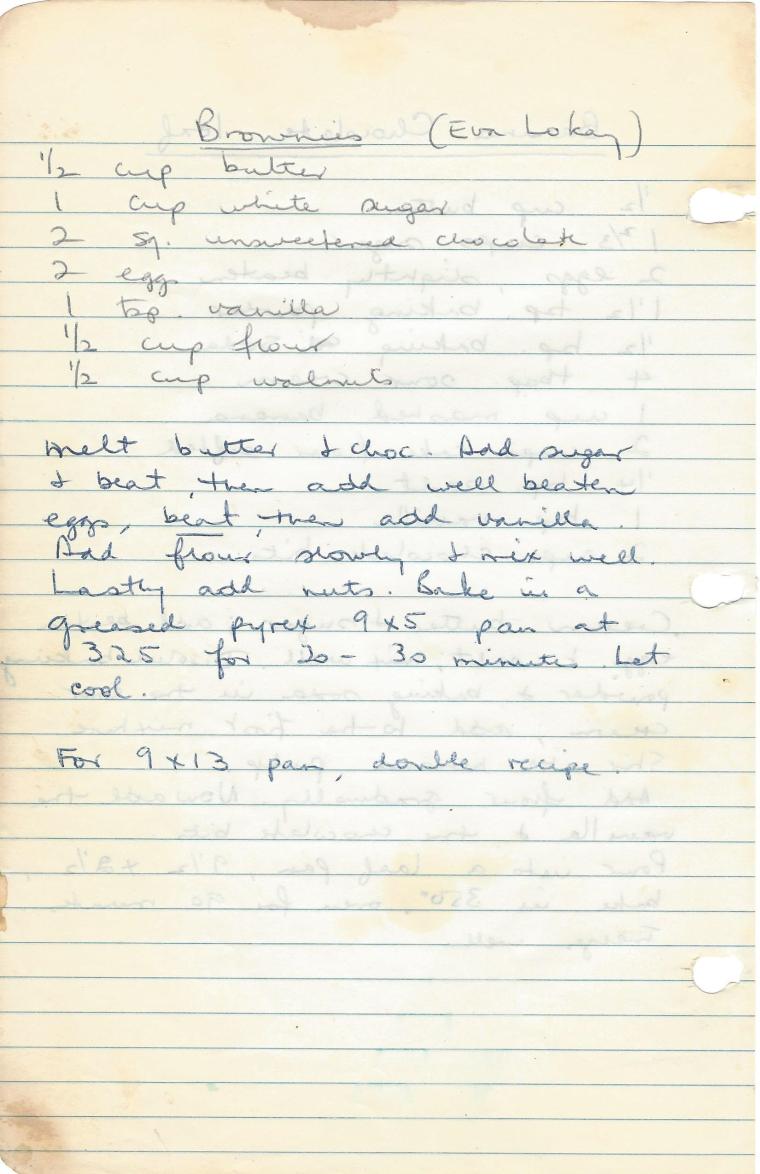 Brownies (Eva Lokay)
1/2 cup butter
1 cup white sugar
2 sq. unsweetened chocolate
2 eggs
1 tsp. vanilla
1/2 cup flour
1/2 cup walnuts
Melt butter & choc. Add sugar
& beat, then add well beaten
eggs, beat, then add vanilla.
Add flour slowly & mix well.
Lastly add nuts. Bake in a
greased pyrex 9x5 pan at
325 for 20-30 minutes. Let
cool.
For 9x13 pan, double recipe.